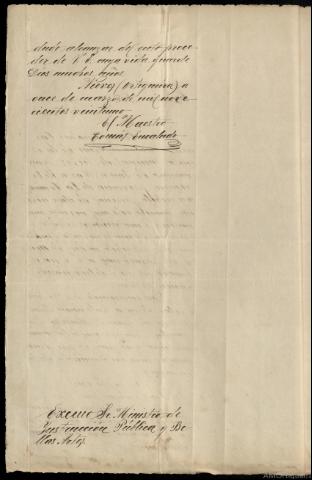 dudo alcanzar del recto proce-
der de V. E. cuya vida guarde
Dios muchos años.
Nieves (Ortigueira) a
once de marzo de mil nove-
cientos veintiuno
El Maestro
Tomás
Excmo Sr. Ministro de
Instrucción Pública y Be-
llas Artes.